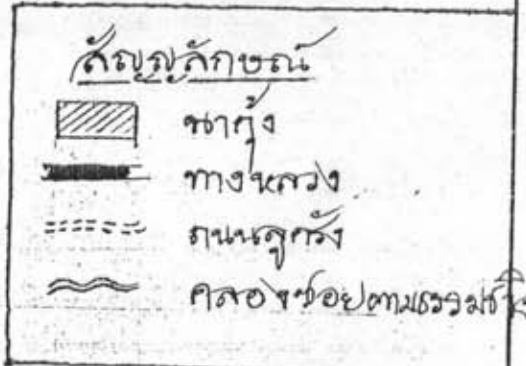 สัญญลักษณ์
นากุ้ง
ทางหลวง
ถนนลูกรัง
คลองซอยตามธรรมชาติ